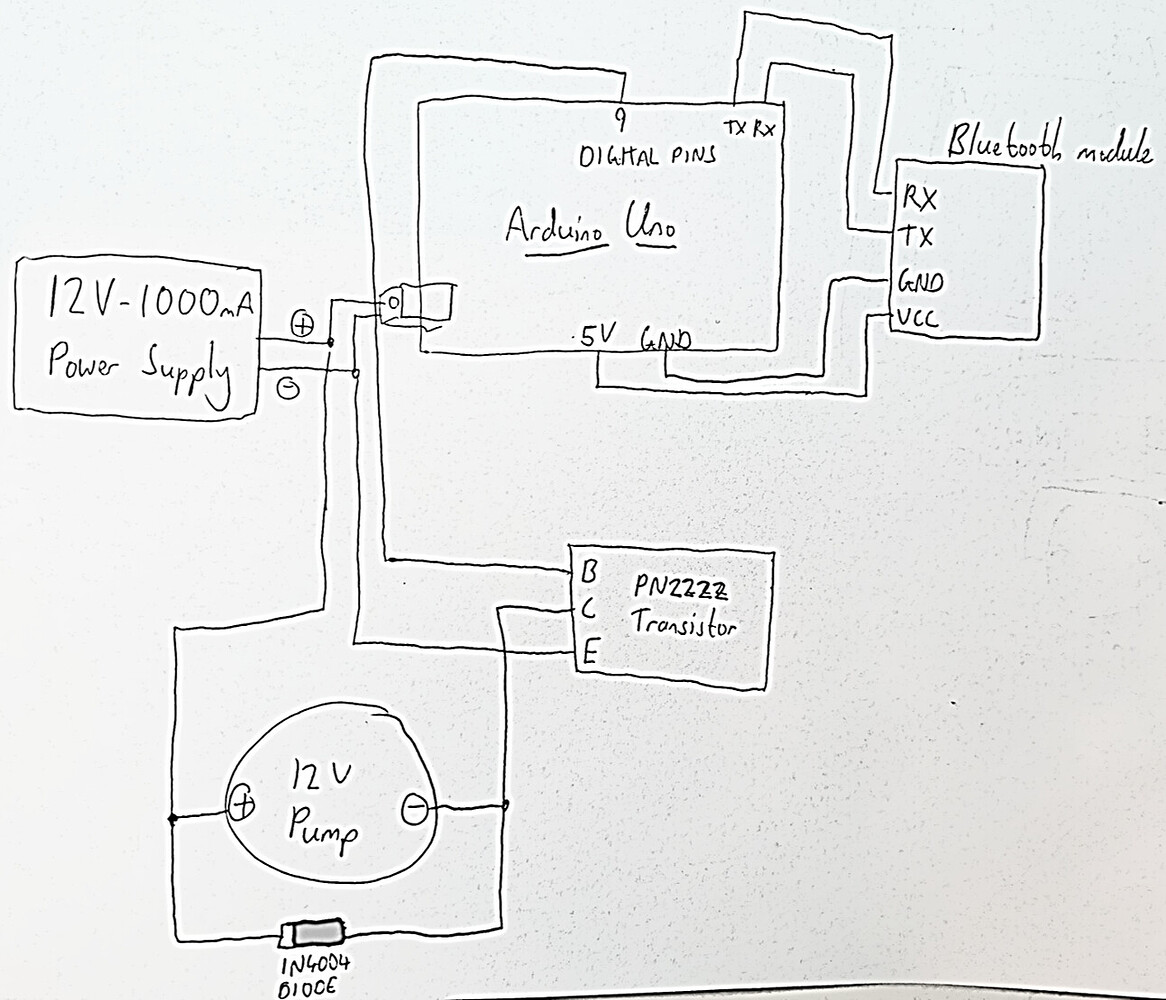 9
TX RX
DIGITAL PINS
Arduino Uno
5V GND
Bluetooth module
RX
TX
GND
VCC
12V-1000mA
Power Supply
+
-
B
C
E
PN2222
Transistor
12V
Pump
+
-
1N4004
DIODE